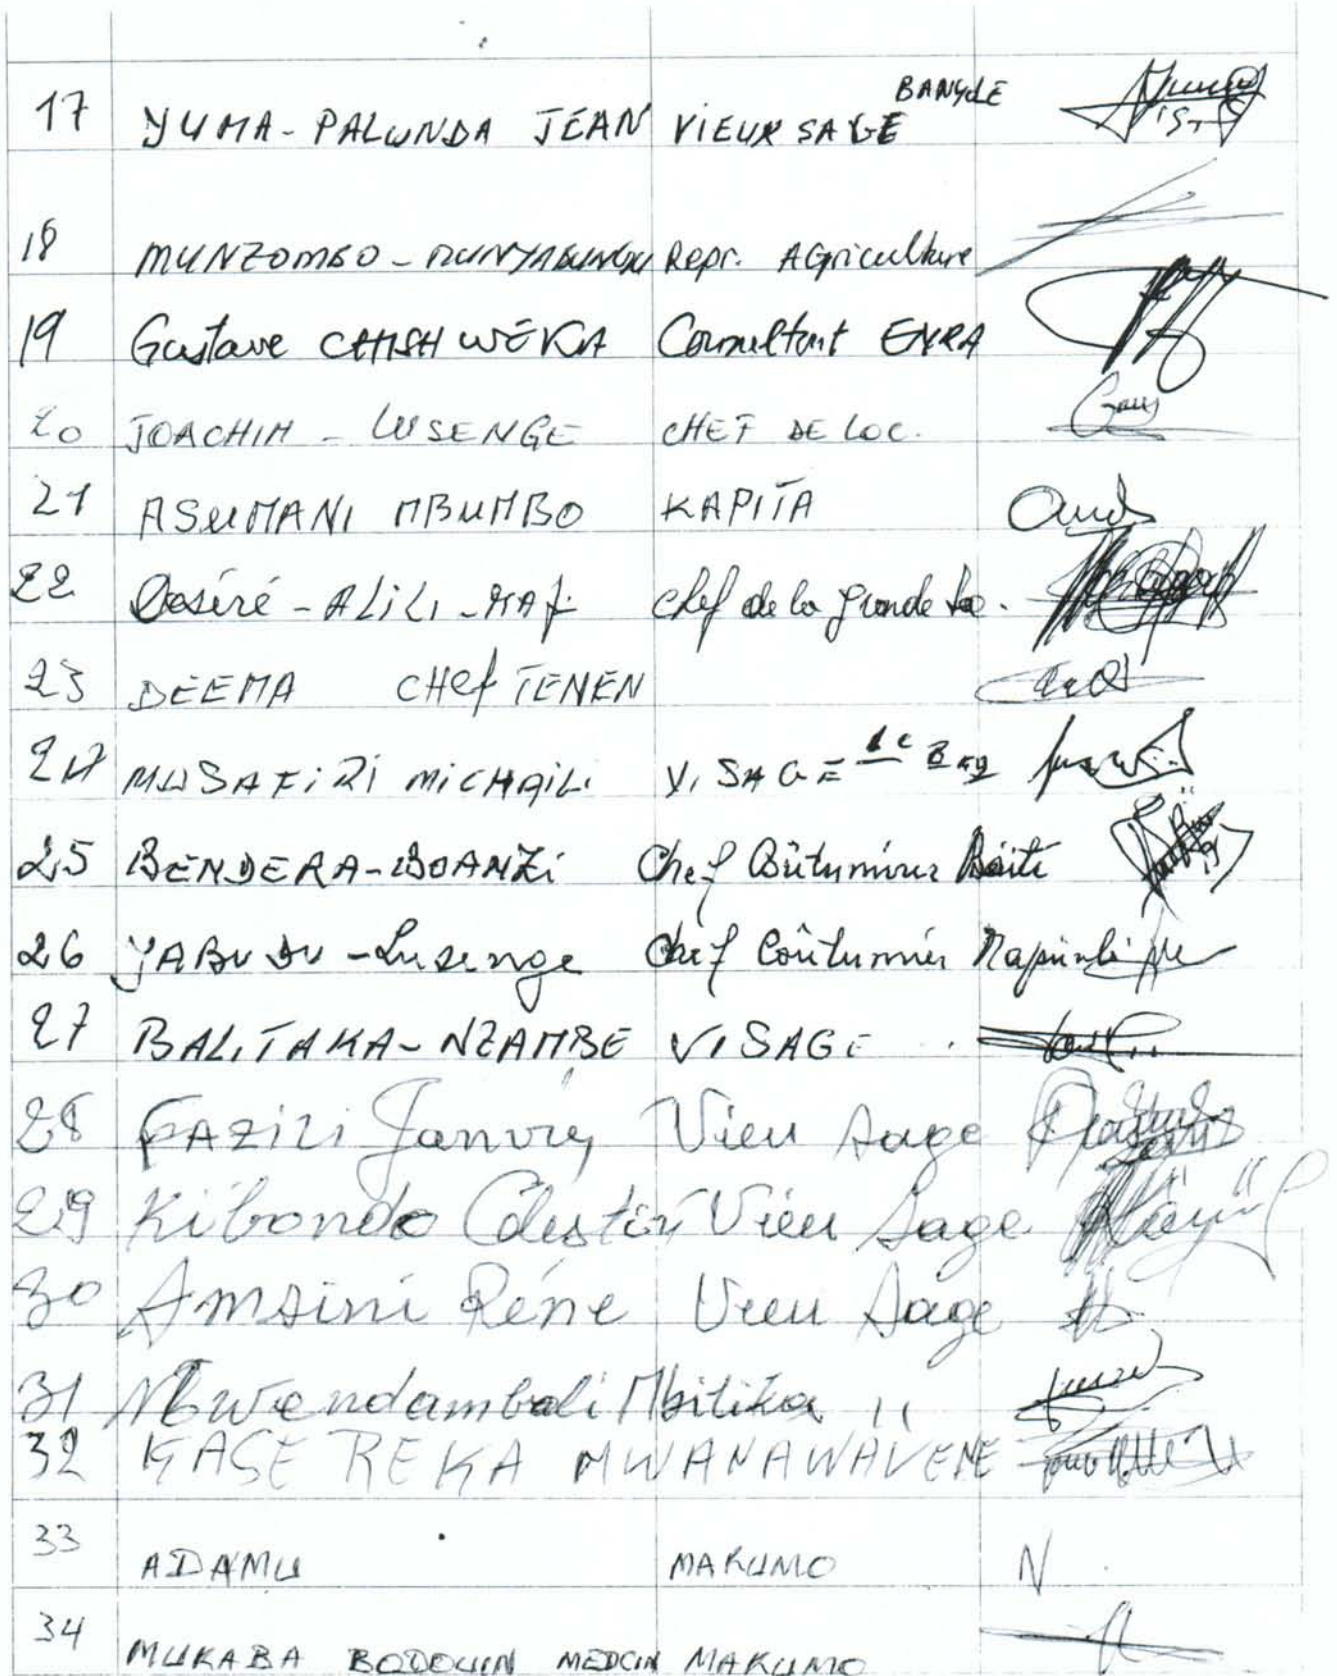 17 YUMA-PALUNDA JEAN VIEUX SAGE BANGOLE
18 MUNZOMBO - MUNYABUNGU Repr. AGriculture
19 Gustave CHISHWEKA Consultant ENRA
20 JOACHIM - LUSENGE CHEF DE LOC.
21 ASUMANI MBUMBO KAPITA
22 Désiré - ALILI - MAF chef de la grande Loc.
23 DEEMA CHef TENEN
24 MUSAFIRI MICHAILI V, SAGE
25 BENDERA-BOANZI Chef Coûtumier
26 YABUDU - Lusenge Chef Coûtumier
27 BALITAKA-NZAMBE V, SAGE
28 FAZILI Janvry Vieu Sage
29 Kibondo Célestin Vieu Sage
30 Amsini Réne Vieu Sage
31 Mbwendambali Mbitika 11
32 KASE REKA MWANAWAVENE
33 ADAMU MAKUMO N
34 MUKABA BODOUIN MEDCIN MAKUMO